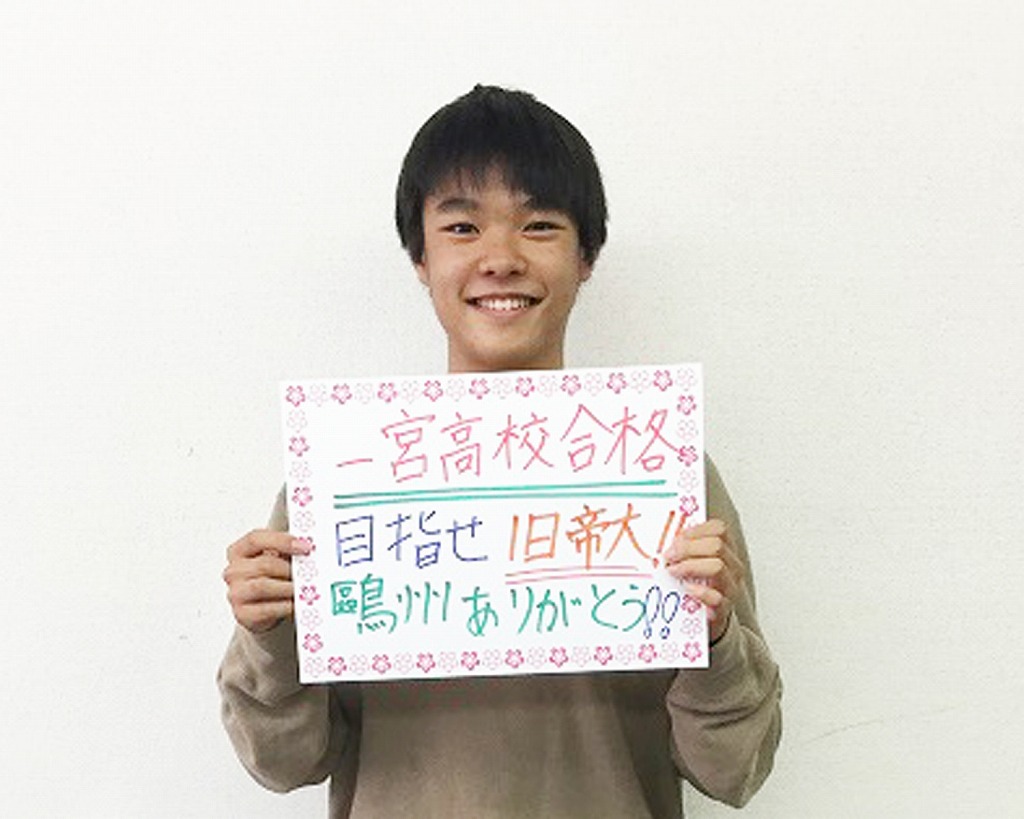 一宮高校合格
目指せ旧帝大!!
鷗州ありがとう!!